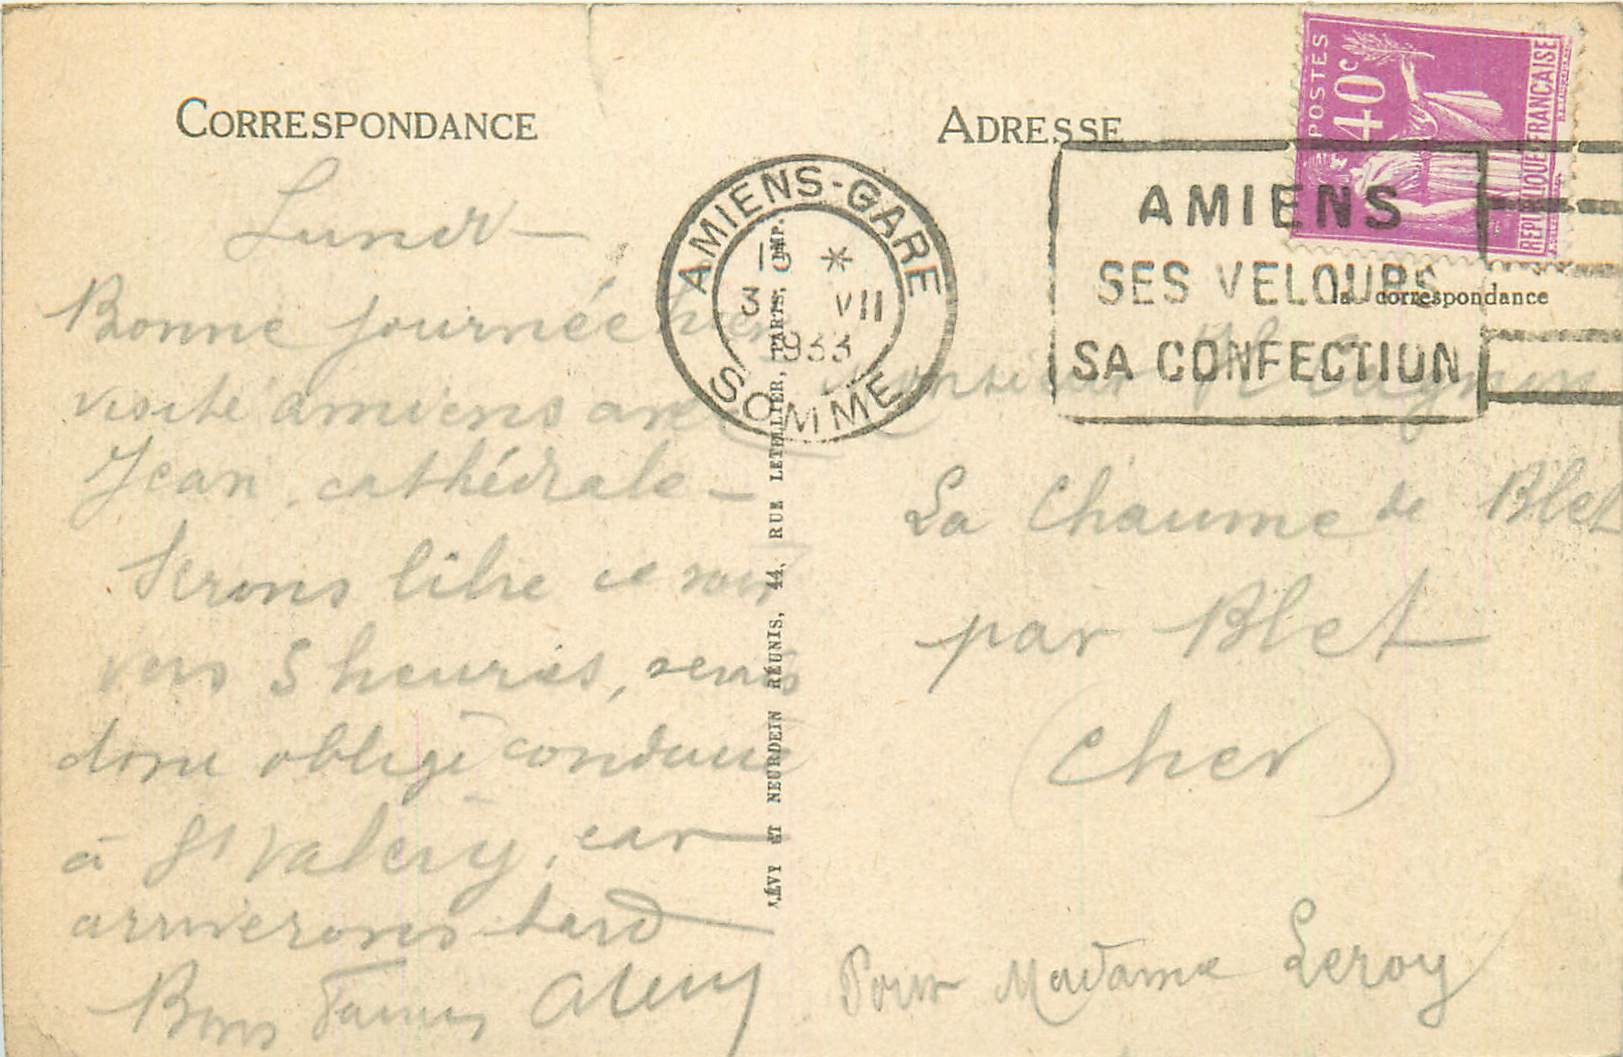 CORRESPONDANCE
Lundi —
Bonne journée hier
visité amiens avec
Jean, cathédrale —
Serons libre ce soir
vers 5 heures, serons
donc obligé conduire
à St Valery, car
arriverons tard
Bons
LÉVY ET NEURDEIN RÉUNIS, 44, RUE LETELLIER, PARIS, IMP.
AMIENS-GARE
*
VII
1933
SOMME
ADRESSE
POSTES
40c
REPUBLIQUE FRANÇAISE
AMIENS
SES VELOURS
SA CONFECTION
la correspondance
Monsieur
La Chaume de Blet
par Blet
(Cher)
Pour Madame Leroy